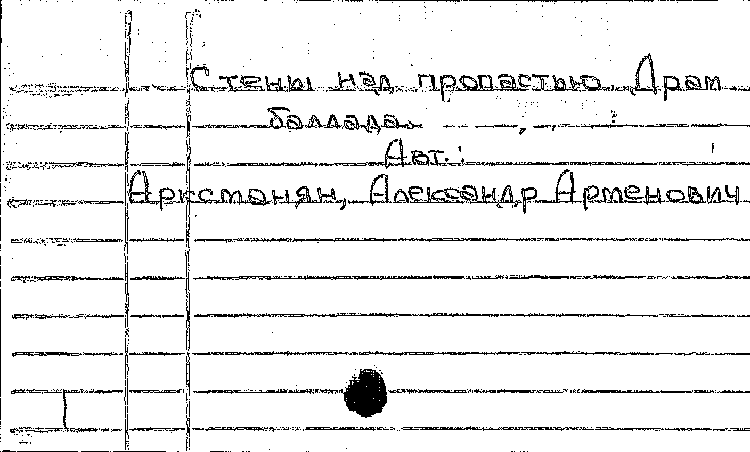 Стены над пропастью. Драм.
баллада.
Авт.:
Арксманян, Александр Арменович